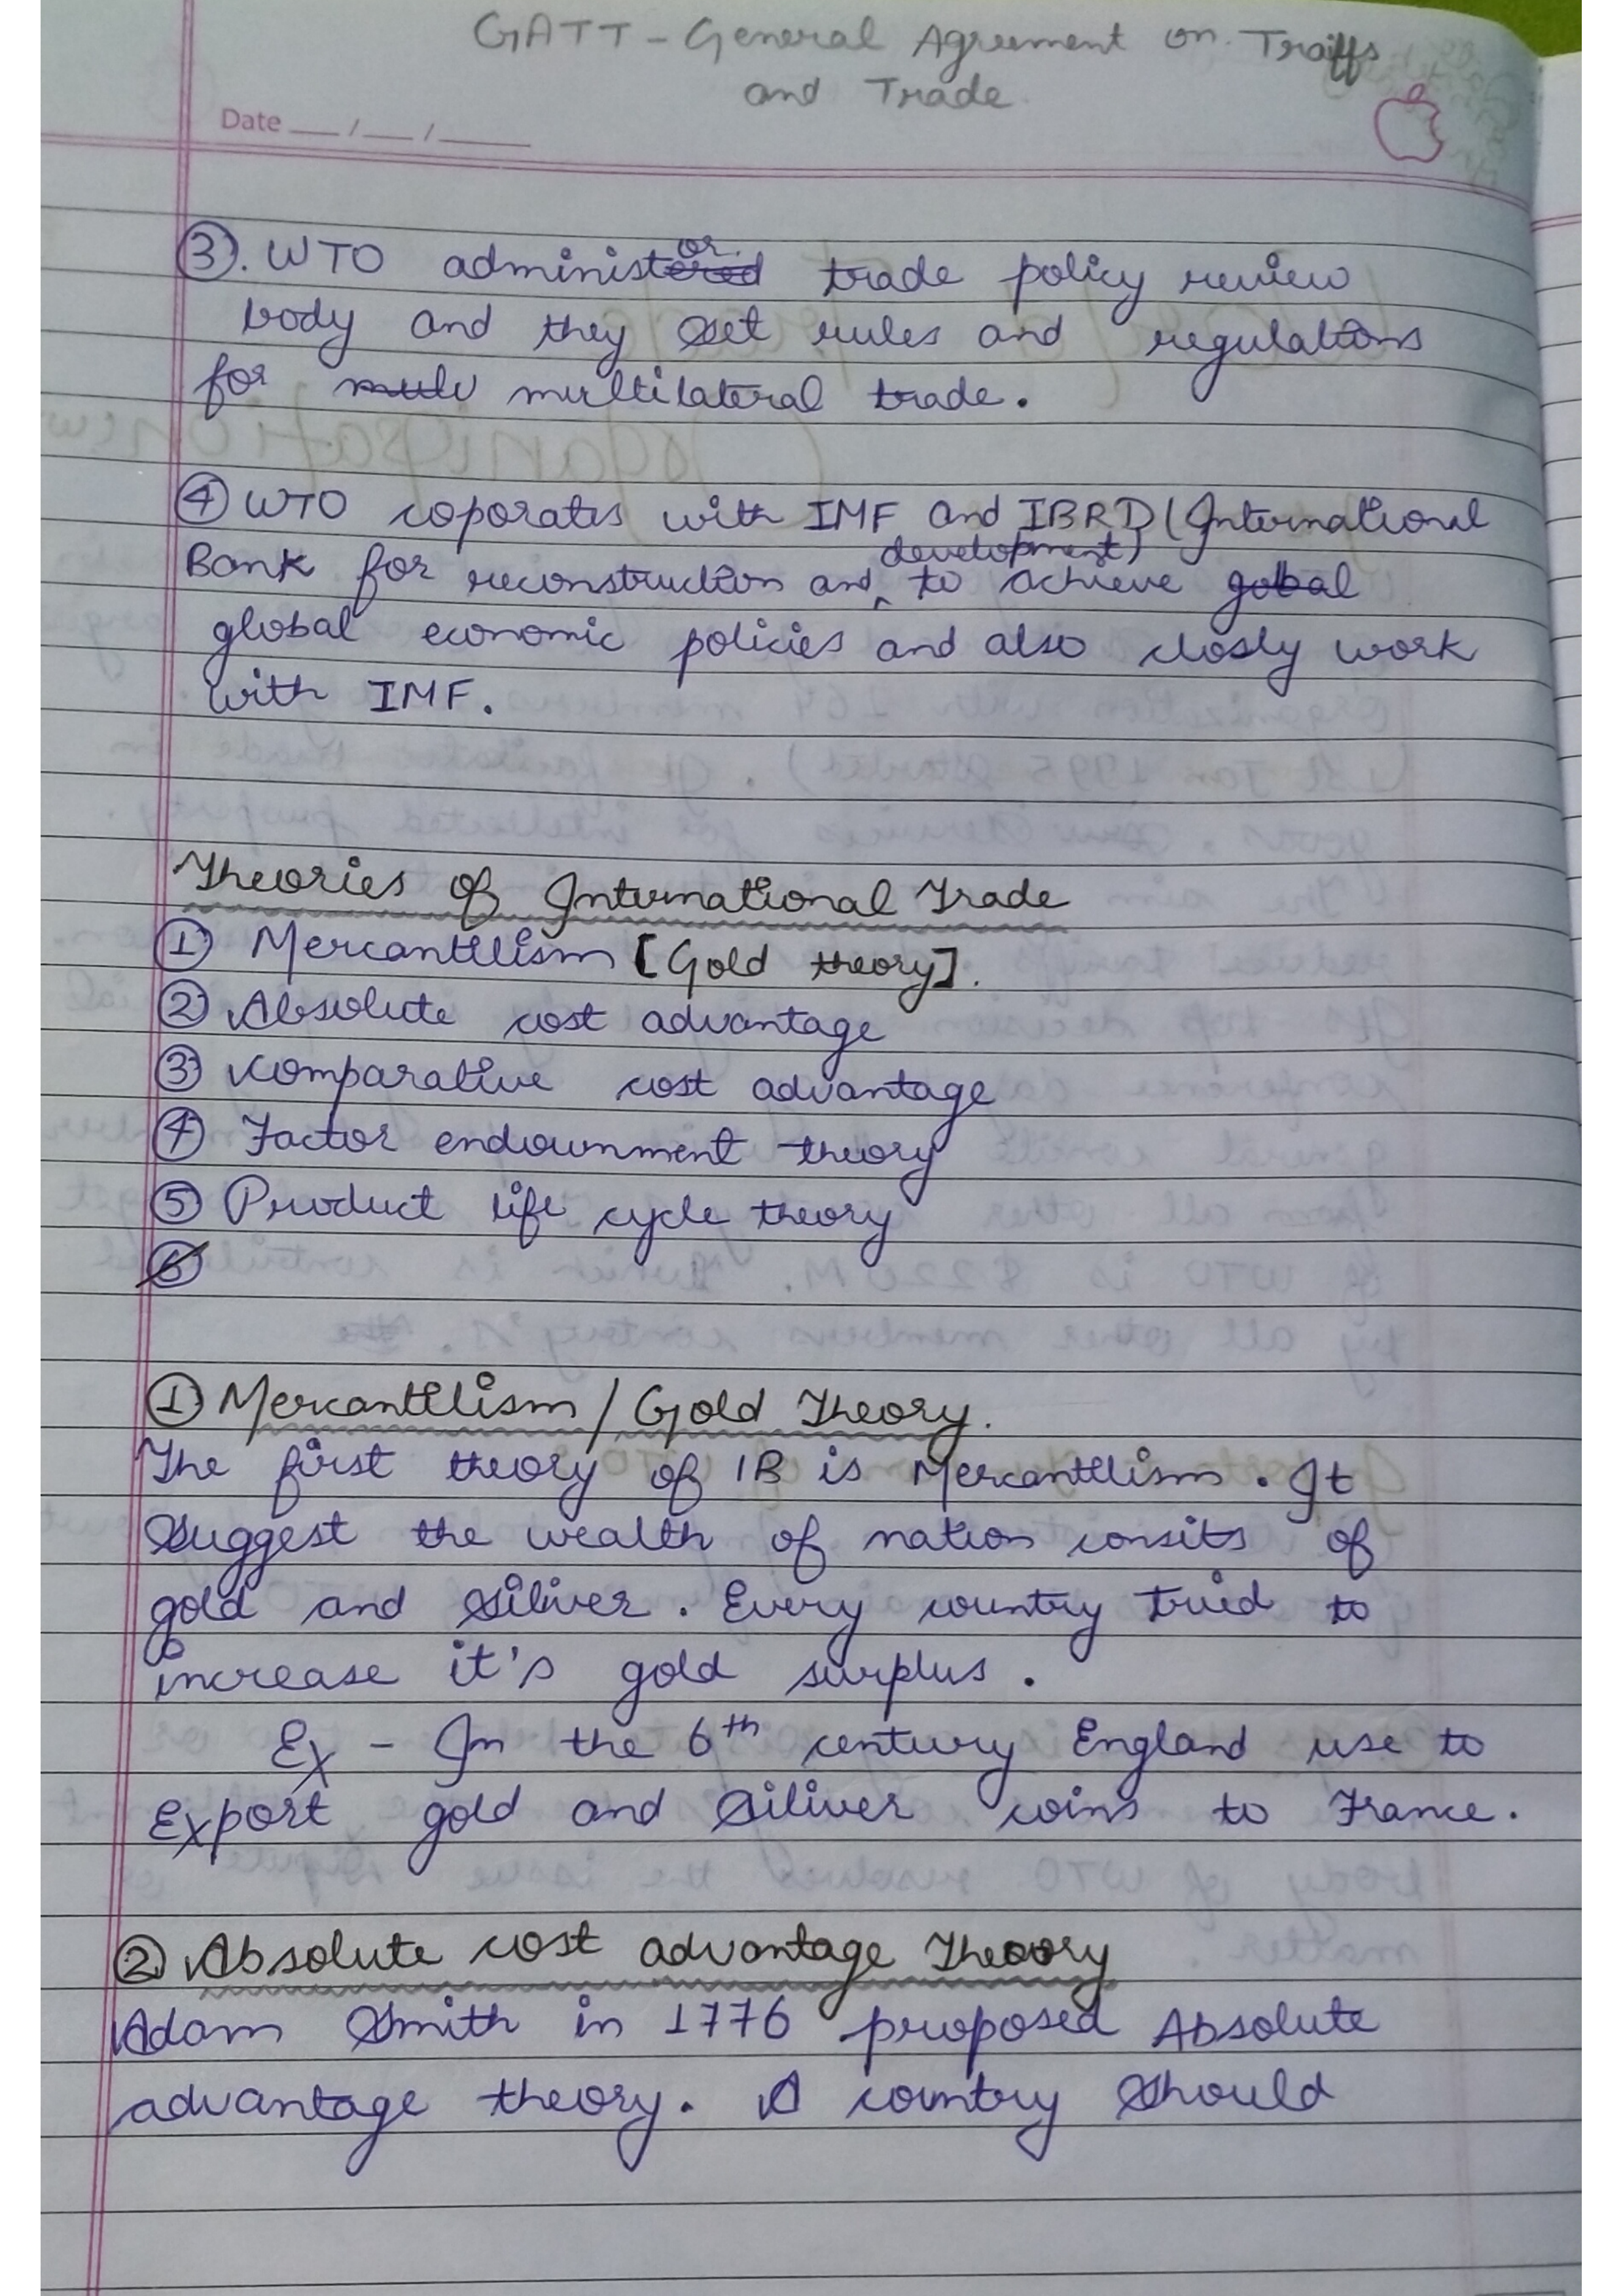 GATT - General Agreement on Traiffs
and Trade
Date __/__/____
③. WTO administor trade policy review
body and they set rules and regulations
for multilateral trade.
④ WTO coporates with IMF and IBRD (International
Bank for reconstruction and development) to achieve gobal
global economic policies and also closly work
with IMF.
Theories of International Trade
① Mercantilism [Gold theory].
② Absolute cost advantage
③ Comparative cost advantage
④ Factor endownment theory
⑤ Product life cycle theory
⑥
① Mercantilism / Gold Theory.
The first theory of IB is Mercantilism. It
Suggest the wealth of nation consits of
gold and Siliver. Every country tried to
increase it's gold surplus.
Ex - In the 6th century England use to
Export gold and Siliver coins to France.
② Absolute cost advantage Theory
Adam Smith in 1776 proposed Absolute
advantage theory. A country Should